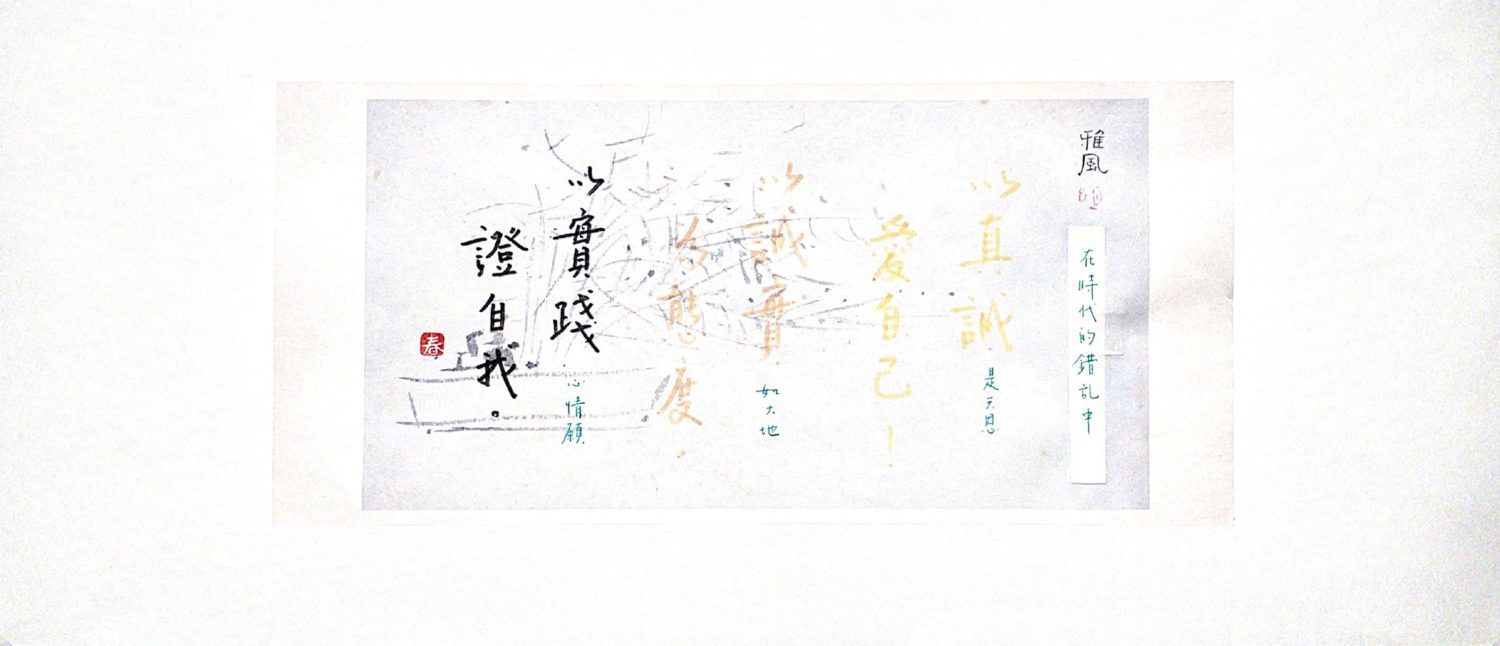 雅風
在時代的錯乱中
以真誠
是天恩
愛自己！
以誠實
如大地
為態度，
以實踐
心情願
證自我。
春